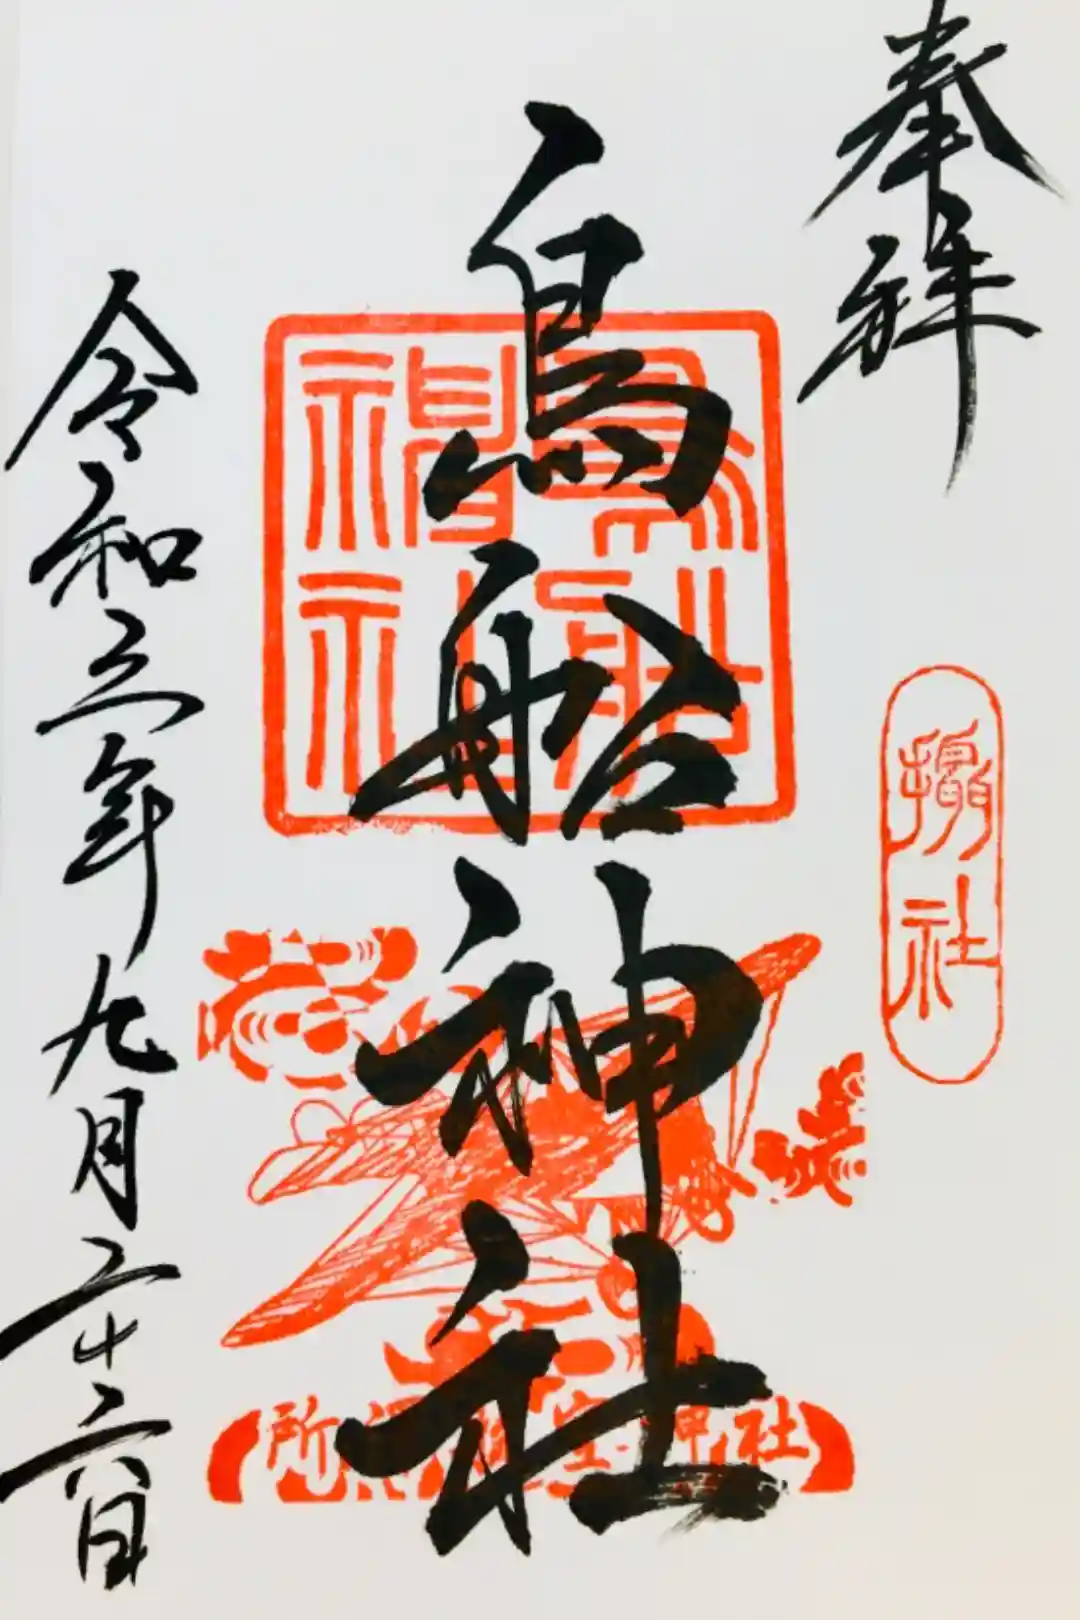 奉拝
摂社
鳥船神社
鳥船神社
所澤航空神社
令和三年九月二十六日